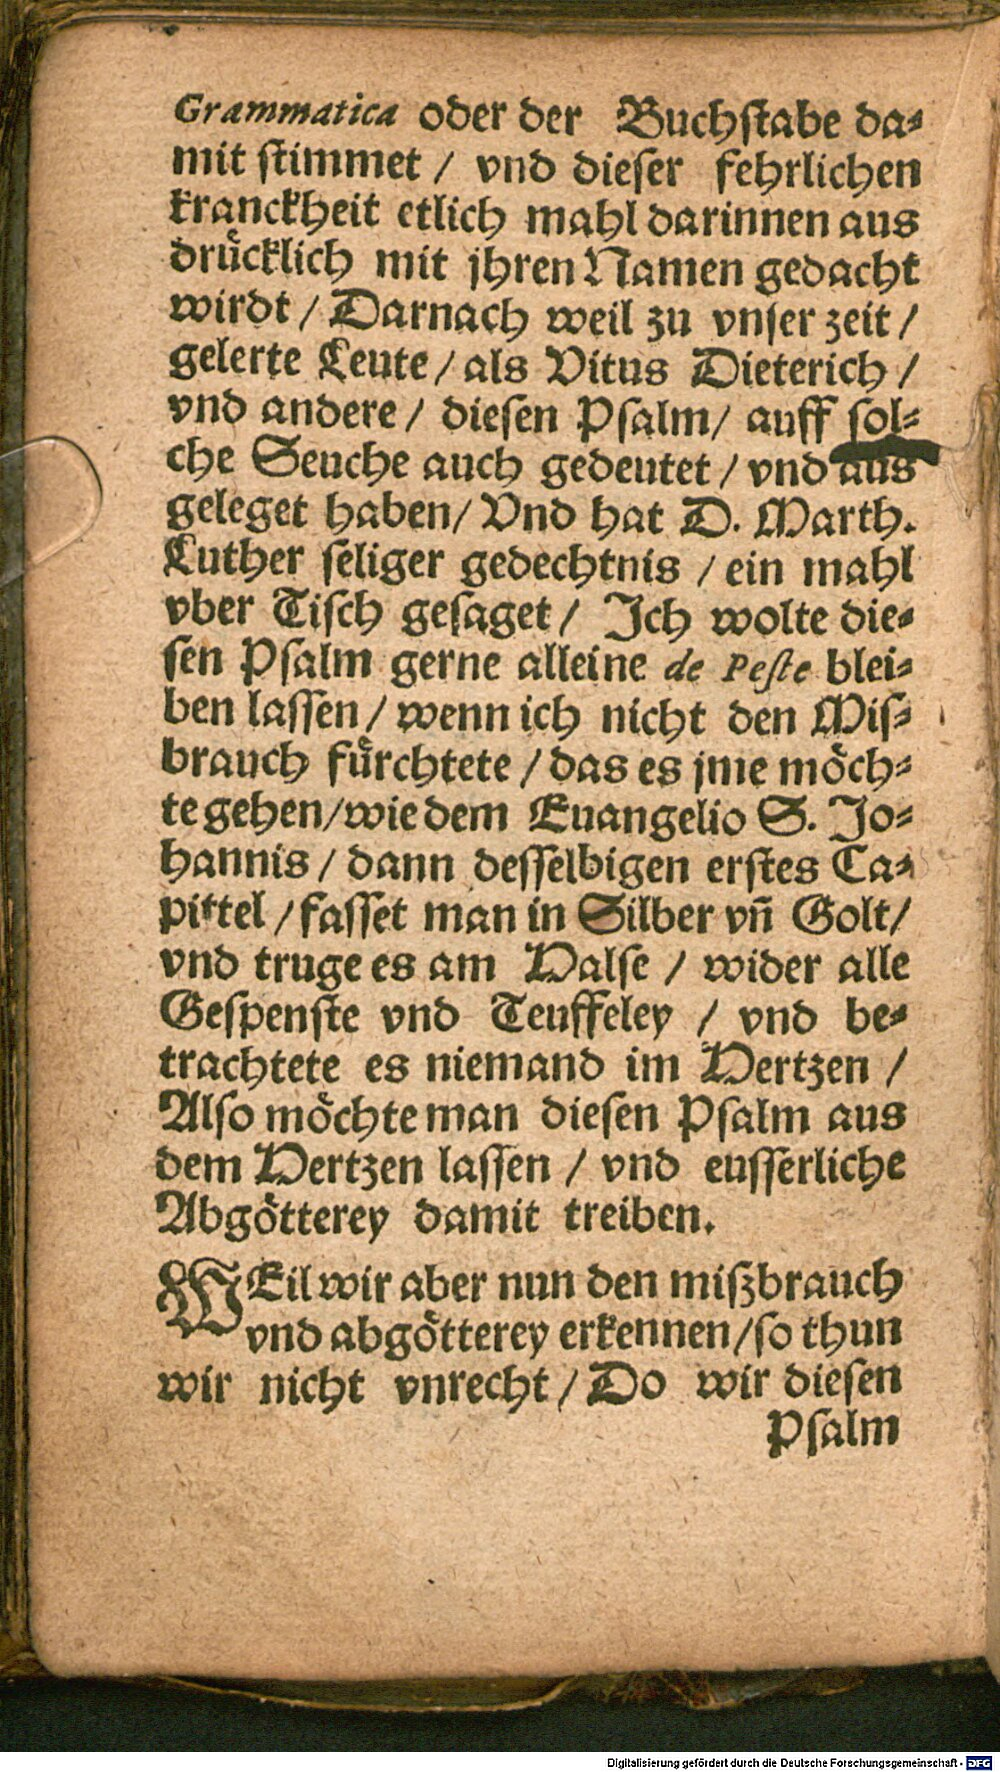 Grammatica oder der Buchſtabe da⸗
mit ſtimmet / vnd dieſer fehrlichen
kranckheit etlich mahl darinnen aus
druͤcklich mit jhren Namen gedacht
wirdt / Darnach weil zu vnſer zeit /
gelerte Leute / als Vitus Dieterich /
vnd andere / dieſen Pſalm / auff ſol⸗
che Seuche auch gedeutet / vnd aus
geleget haben / Vnd hat D. Marth.
Luther ſeliger gedechtnis / ein mahl
vber Tiſch geſaget / Ich wolte die⸗
ſen Pſalm gerne alleine de Peſte blei⸗
ben laſſen / wenn ich nicht den Miſ⸗
brauch fuͤrchtete / das es jme moͤch⸗
te gehen / wie dem Euangelio S. Jo⸗
hannis / dann deſſelbigen erſtes Ca⸗
pittel / faſſet man in Silber vñ Golt /
vnd truge es am Halſe / wider alle
Geſpenſte vnd Teuffeley / vnd be⸗
trachtete es niemand im Hertzen /
Alſo moͤchte man dieſen Pſalm aus
dem Hertzen laſſen / vnd euſſerliche
Abgoͤtterey damit treiben.
WEil wir aber nun den miſzbrauch
vnd abgoͤtterey erkennen / ſo thun
wir nicht vnrecht / Do wir dieſen
Pſalm
Digitalisierung gefördert durch die Deutsche Forschungsgemeinschaft - DFG